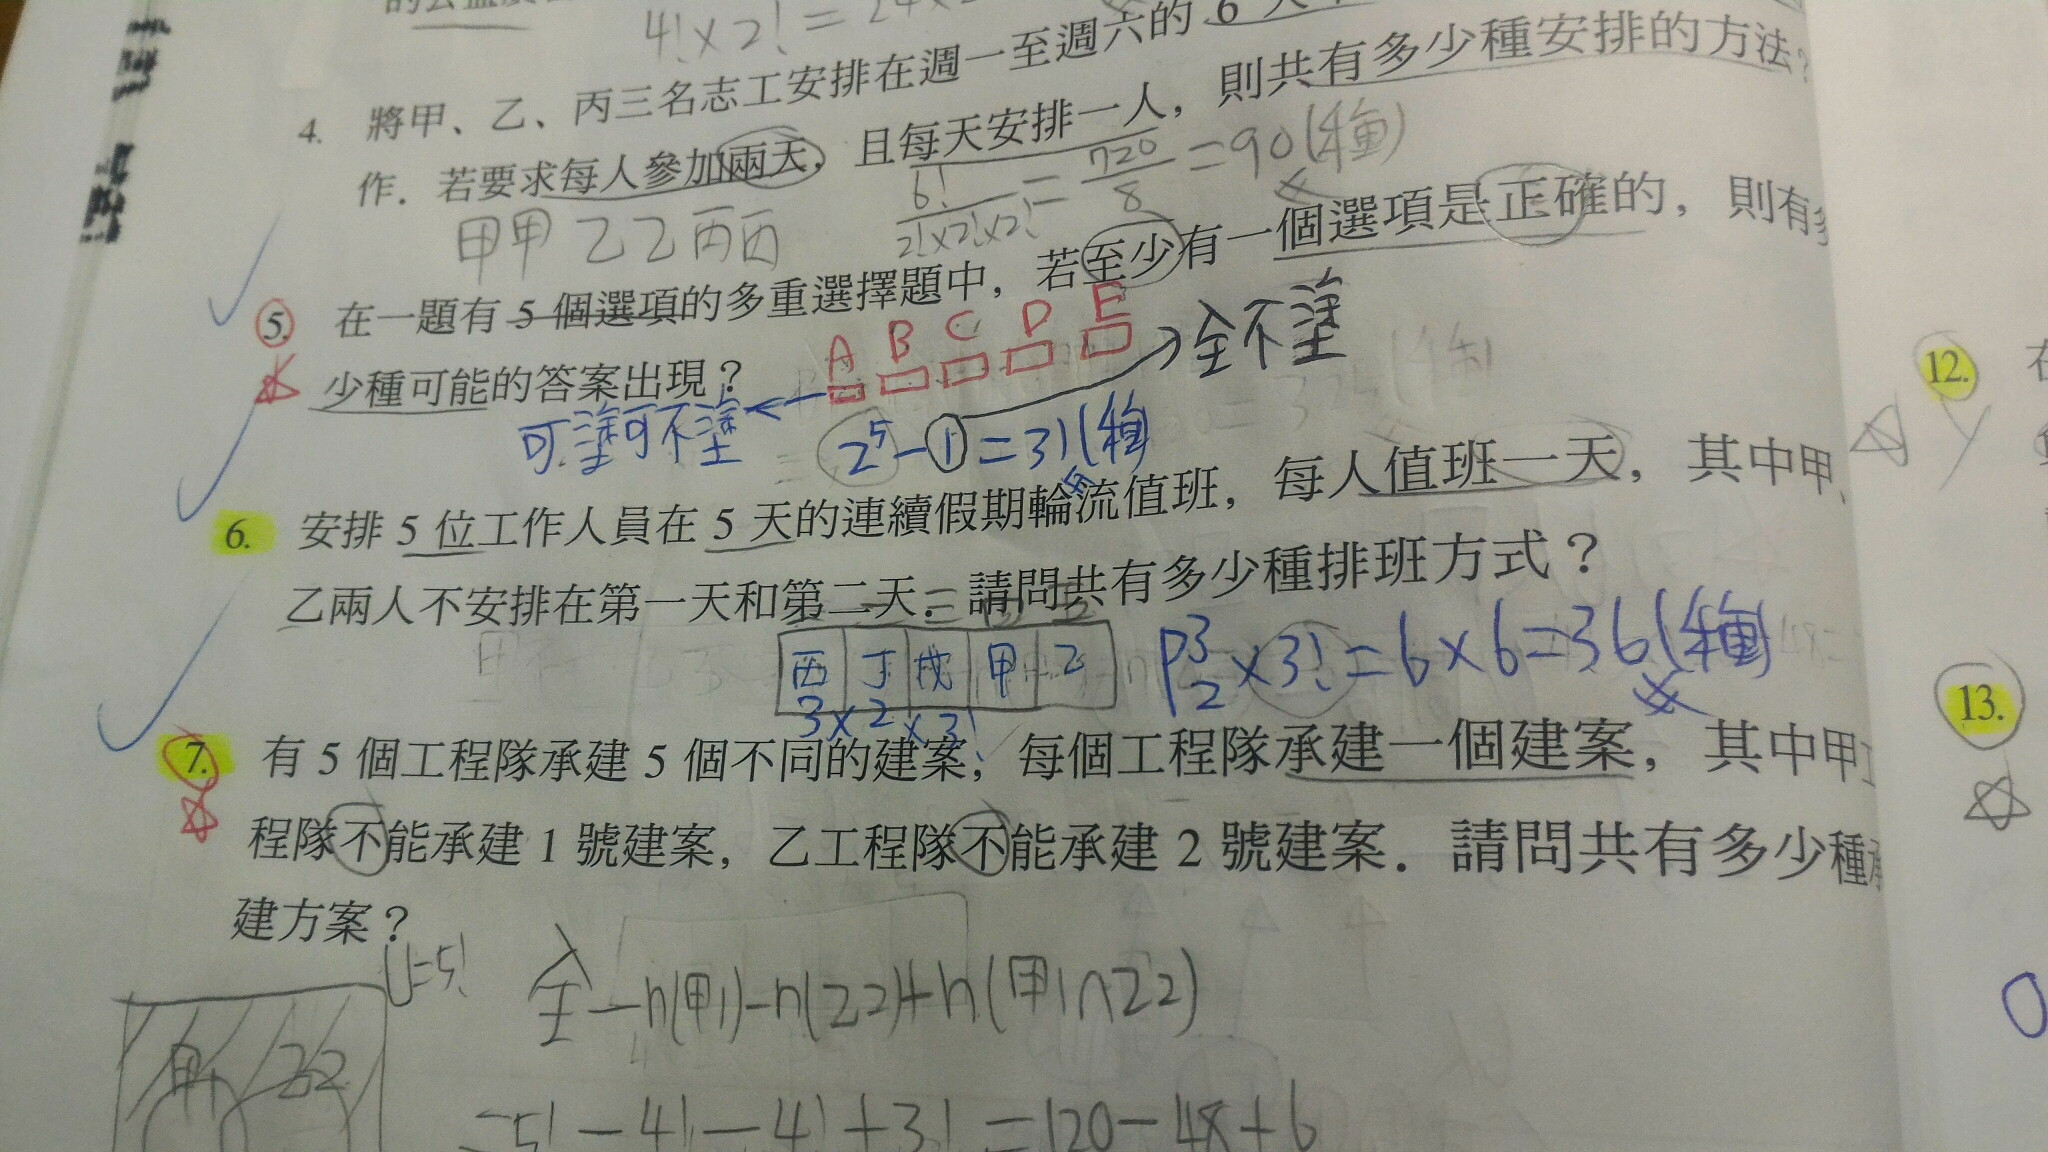 4!×2!=24×2
4. 將甲、乙、丙三名志工安排在週一至週六的 6 天
作．若要求每人參加兩天，且每天安排一人，則共有多少種安排的方法？
甲甲 乙乙 丙丙
6!/2!×2!×2! = 720/8 = 90(種)
5. 在一題有 5 個選項的多重選擇題中，若至少有一個選項是正確的，則有多
少種可能的答案出現？
A B C D E
全不塗
可塗可不塗
2⁵-1=31(種)
6. 安排 5 位工作人員在 5 天的連續假期輪流值班，每人值班一天，其中甲、
乙兩人不安排在第一天和第二天．請問共有多少種排班方式？
丙 丁 戊 甲 乙
3×2×3!
P³₂×3!=6×6=36(種)
7. 有 5 個工程隊承建 5 個不同的建案，每個工程隊承建一個建案，其中甲工
程隊不能承建 1 號建案，乙工程隊不能承建 2 號建案．請問共有多少種承
建方案？
U=5!
全-n(甲1)-n(乙2)+n(甲1∩乙2)
甲1 乙2
=5!-4!-4!+3!=120-48+6
12.
在
13.